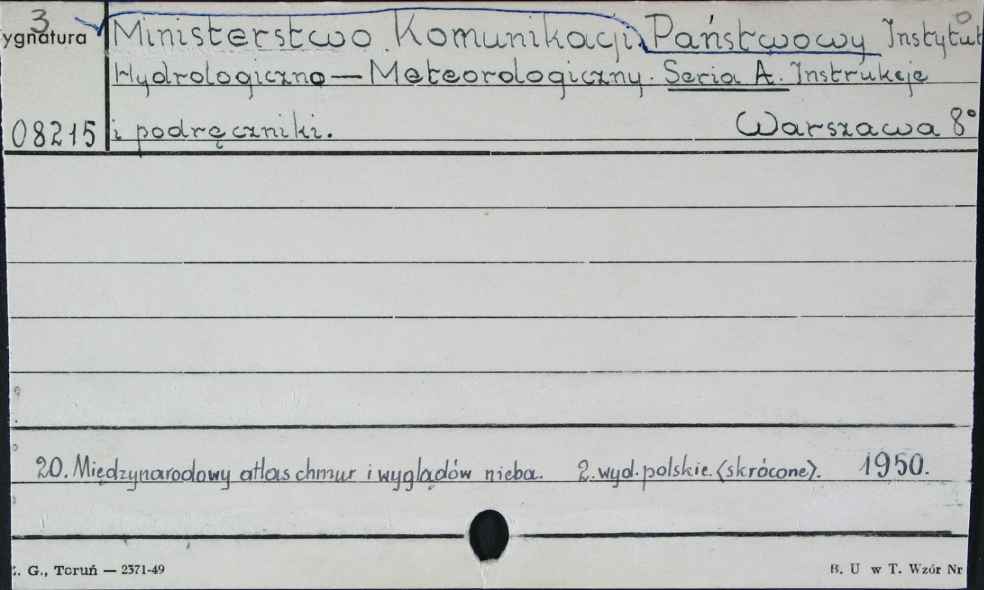 3
ygnatura
Ministerstwo Komunikacji. Państwowy Instytut
Hydrologiczno — Meteorologiczny. Seria A. Instrukcje
08215 i podręczniki. Warszawa 8°
20. Międzynarodowy atlas chmur i wyglądów nieba. 2. wyd. polskie. (skrócone). 1950.
. G., Toruń — 2371-49 B. U w T. Wzór Nr